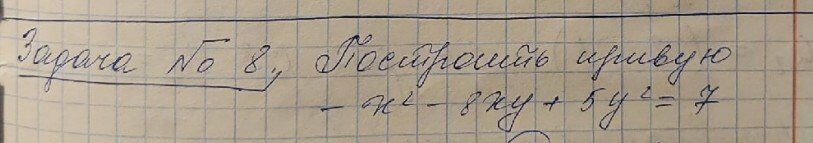 Задача № 8, Построить кривую
- x² - 8xy + 5y² = 7